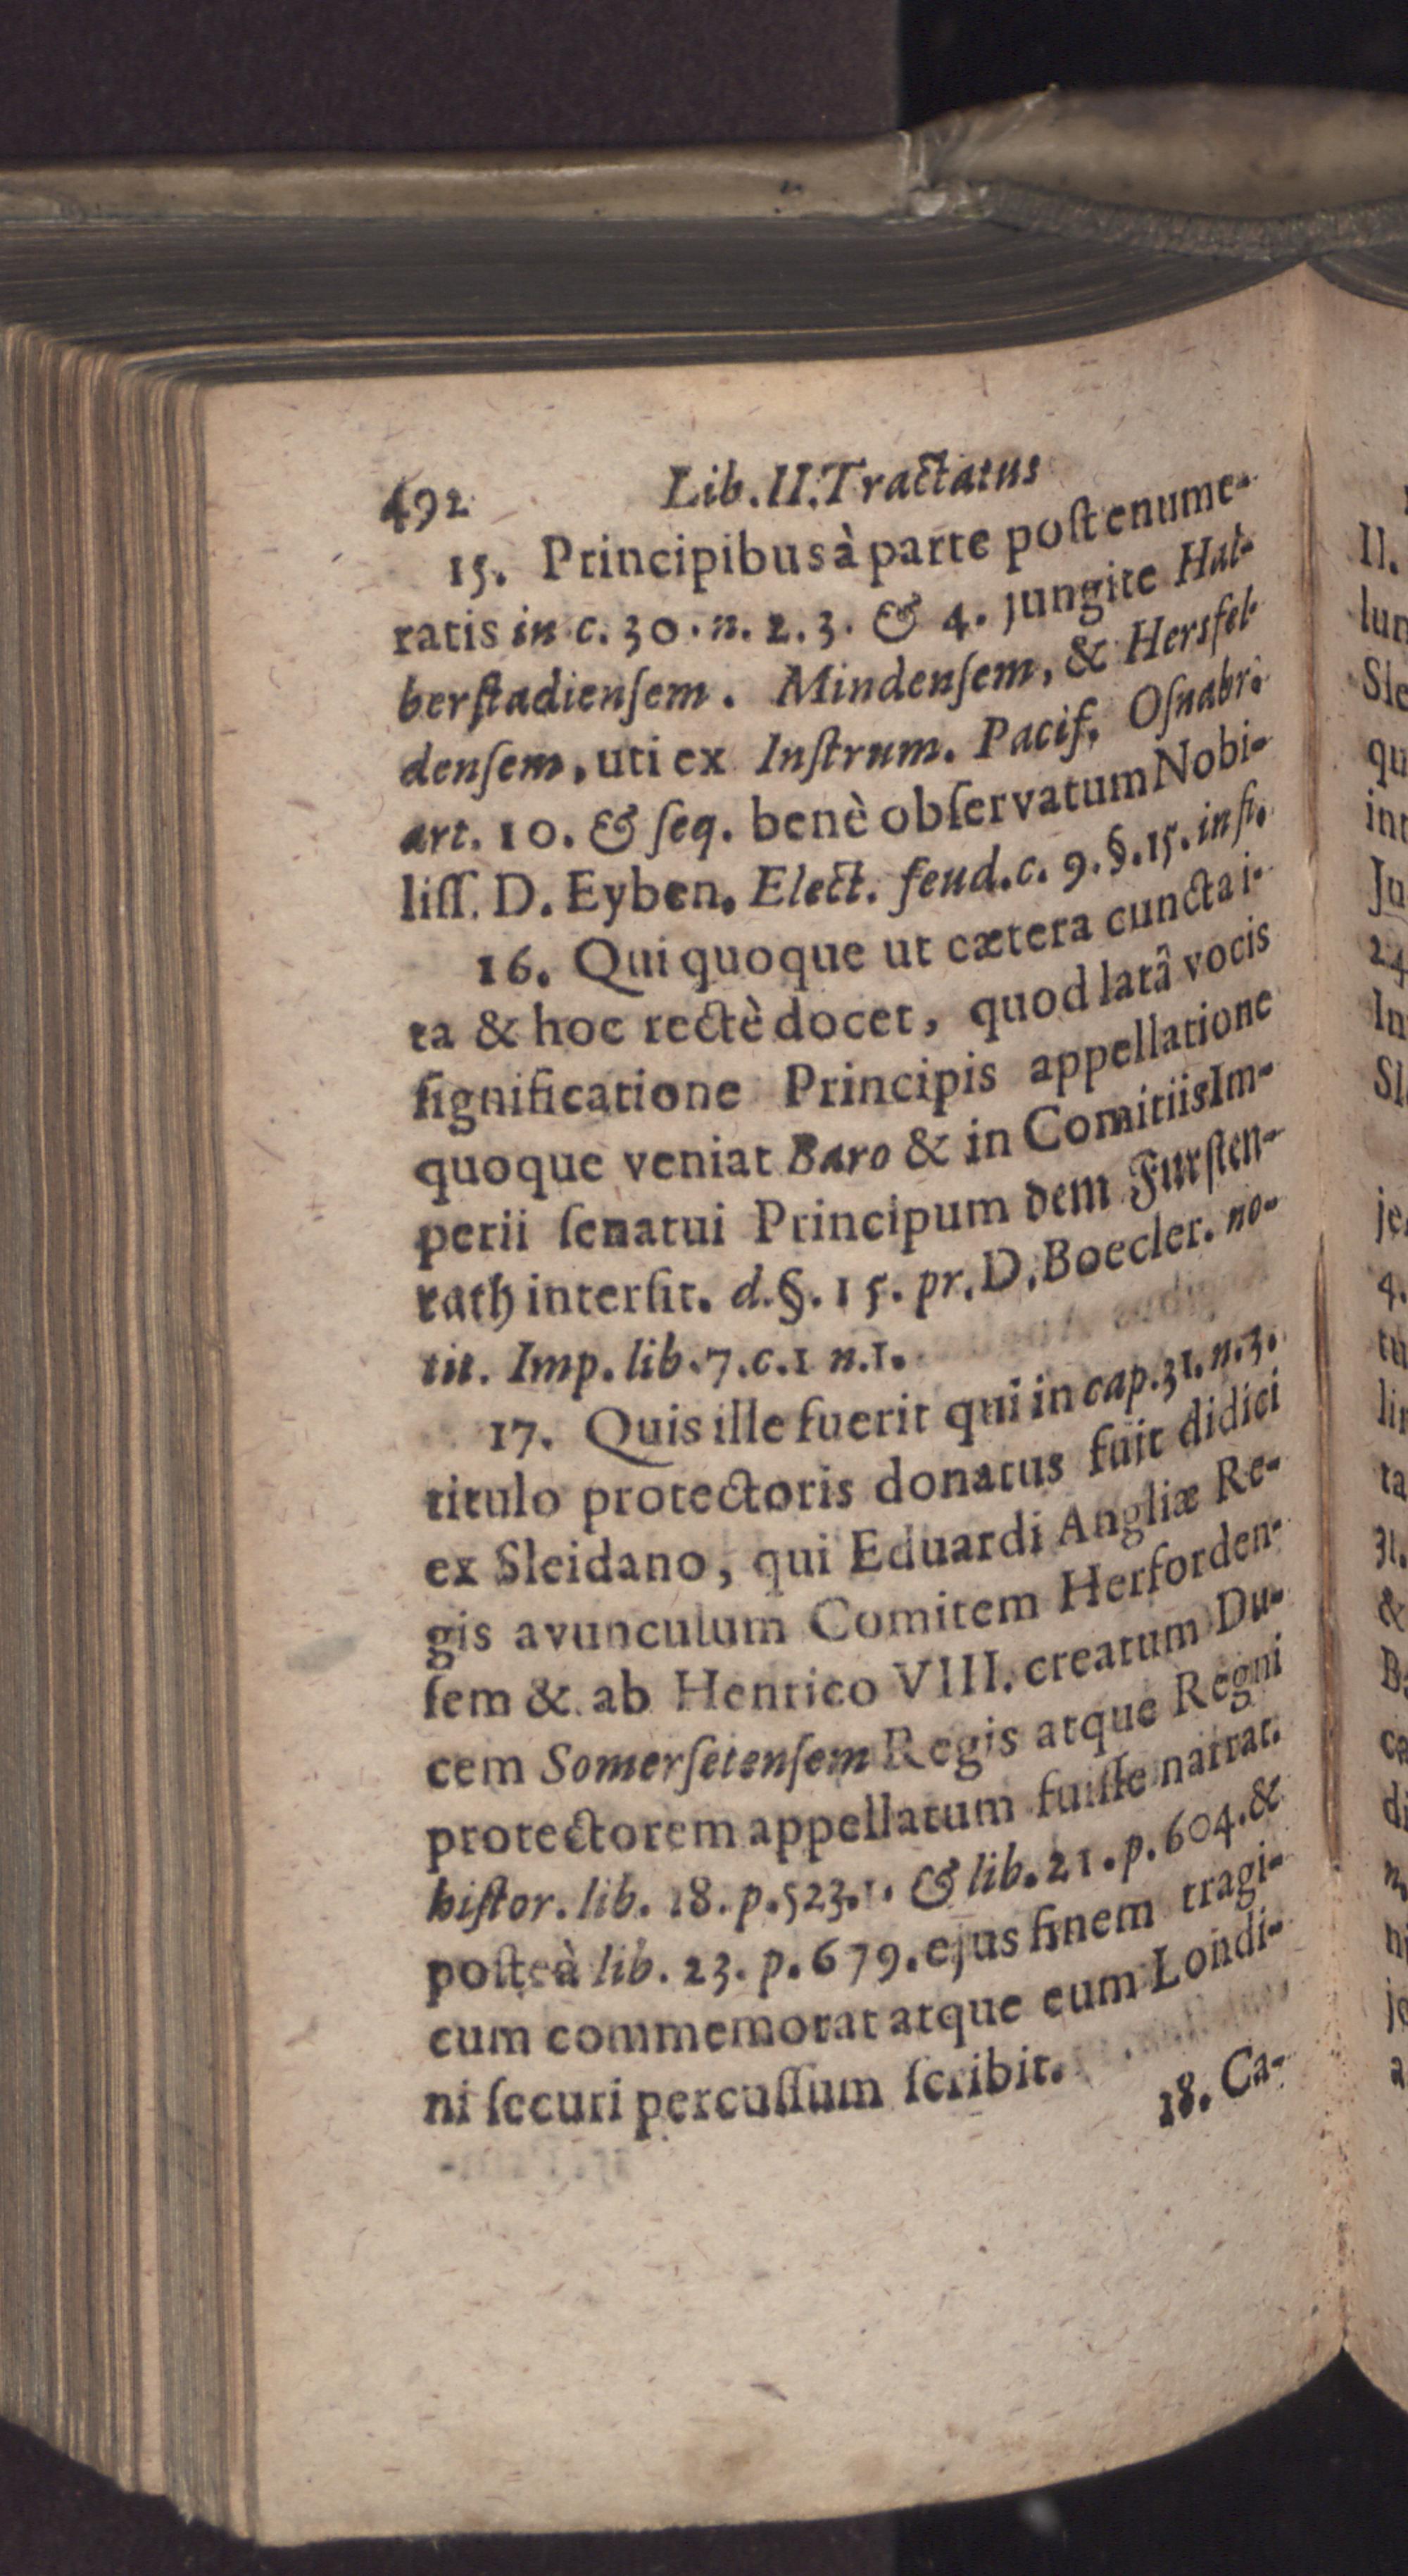 492 Lib. II. Tractatus
15. Principibus à parte post enume-
ratis in c. 30. n. 2. 3. & 4. jungite Hal-
berſtadienſem. Mindenſem, & Hersfel-
denſem, uti ex Inſtrum. Pacif. Oſnabr.
art. 10. & ſeq. benè obſervatum Nobi-
liſſ. D. Eyben. Elect. feud. c. 9. §. 15. in fi.
16. Qui quoque ut cætera cuncta i-
ta & hoc rectè docet, quod latâ vocis
ſignificatione Principis appellatione
quoque veniat Baro & in Comitiis Im-
perii ſenatui Principum dem Furſten-
rath interſit. d. §. 15. pr. D. Boecler. no-
tit. Imp. lib. 7. c. 1 n. 1.
17. Quis ille fuerit qui in cap. 31. n. 3.
titulo protectoris donatus fuit didici
ex Sleidano, qui Eduardi Angliæ Re-
gis avunculum Comitem Herforden-
ſem & ab Henrico VIII. creatum Du-
cem Somerſetenſem Regis atque Regni
protectorem appellatum fuiſſe narrat.
hiſtor. lib. 18. p. 523. 1. & lib. 21. p. 604. &
poſteà lib. 23. p. 679. ejus finem tragi-
cum commemorat atque eum Londi-
ni ſecuri percuſſum ſcribit.
18. Ca-
II.
lun
Sle
qu
int
Ju
24
In
Sl
je
4.
tu
lin
ta
31.
&
ca
di
n.